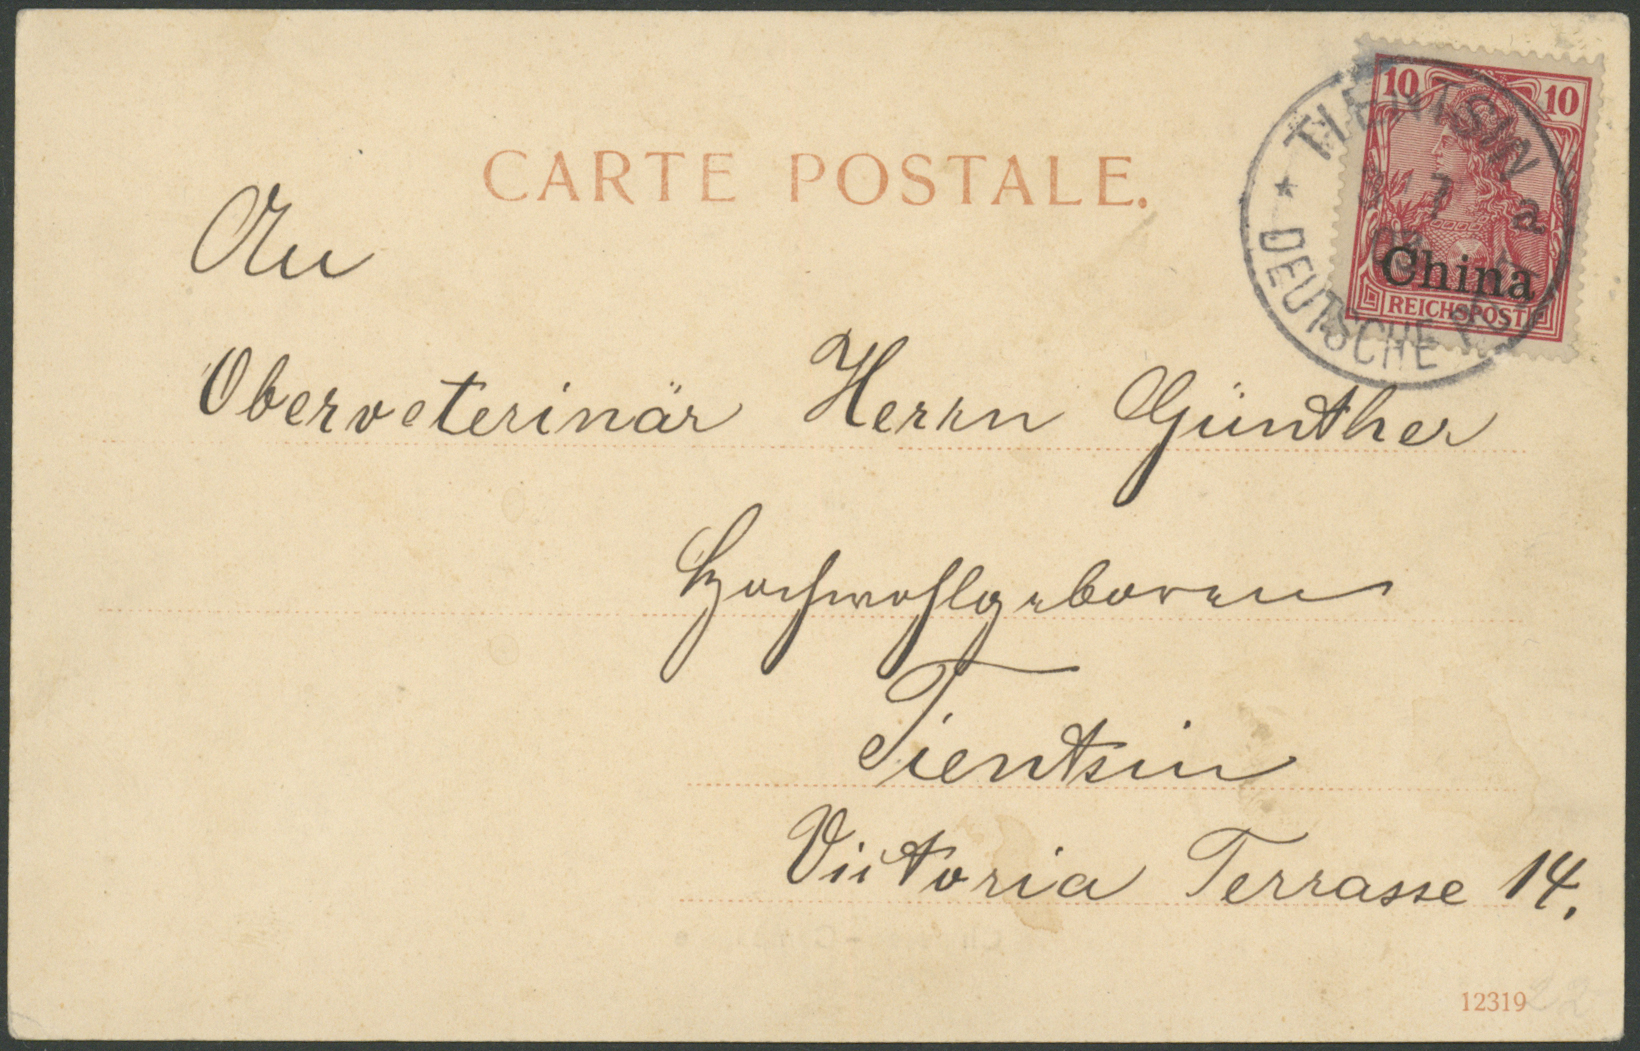 CARTE POSTALE.
10 10
China
REICHSPOST
TIENTSIN
7
a
DEUTSCHE
An
Oberveterinär Herrn Günther
Hochwohlgeboren
Tientsin
Victoria Terrasse 14.
12319